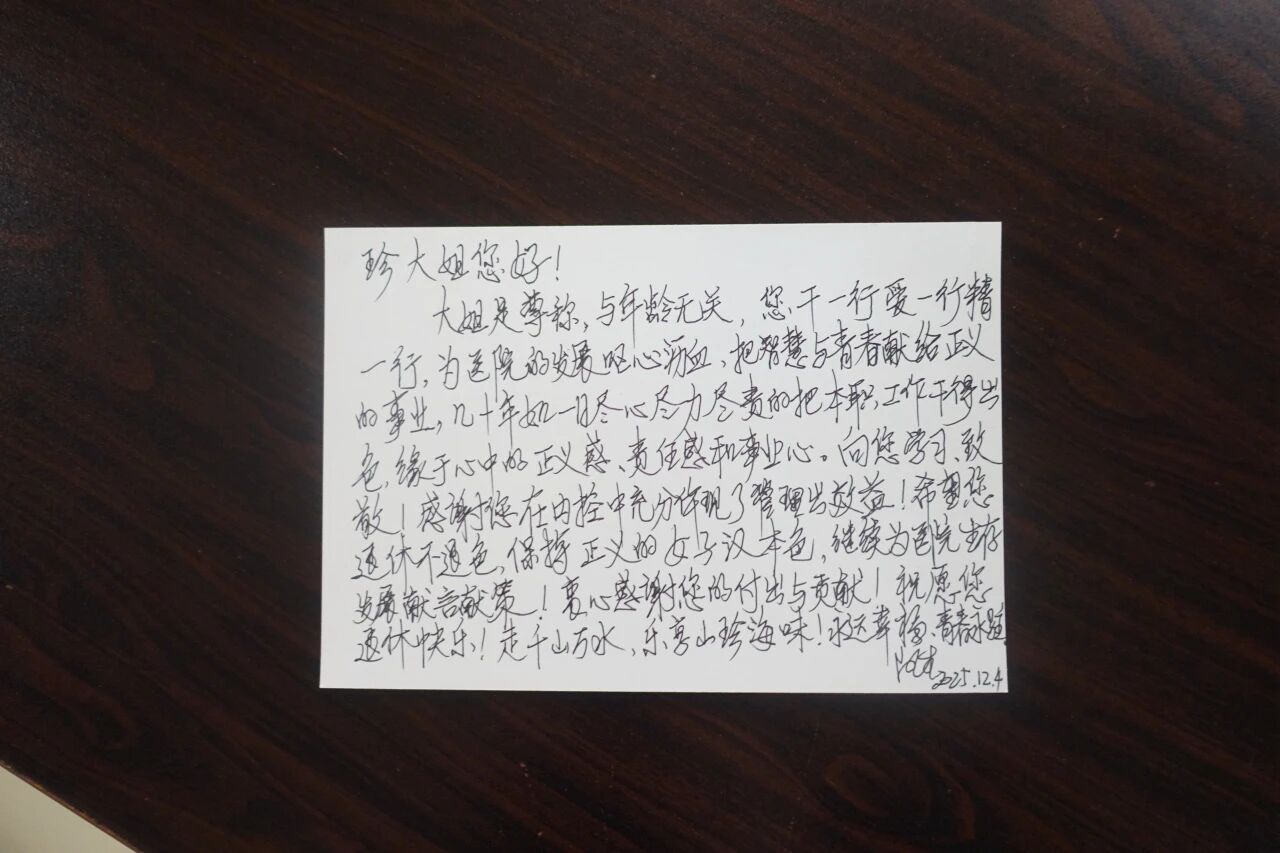 珍大姐您好！
大姐是尊称，与年龄无关，您干一行爱一行精
一行，为医院的发展呕心沥血、把智慧与青春献给正义
的事业，几十年如一日尽心尽力尽责的把本职工作干得出
色，缘于心中的正义感、责任感和事业心。向您学习、致
敬！感谢您在内控中充分体现了管理出效益！希望您
退休不退色，保持正义的女子汉本色，继续为医院生存
发展献言献策！衷心感谢您的付出与贡献！祝愿您
退休快乐！走千山万水，乐享山珍海味！永远幸福、青春永驻
2025.12.4